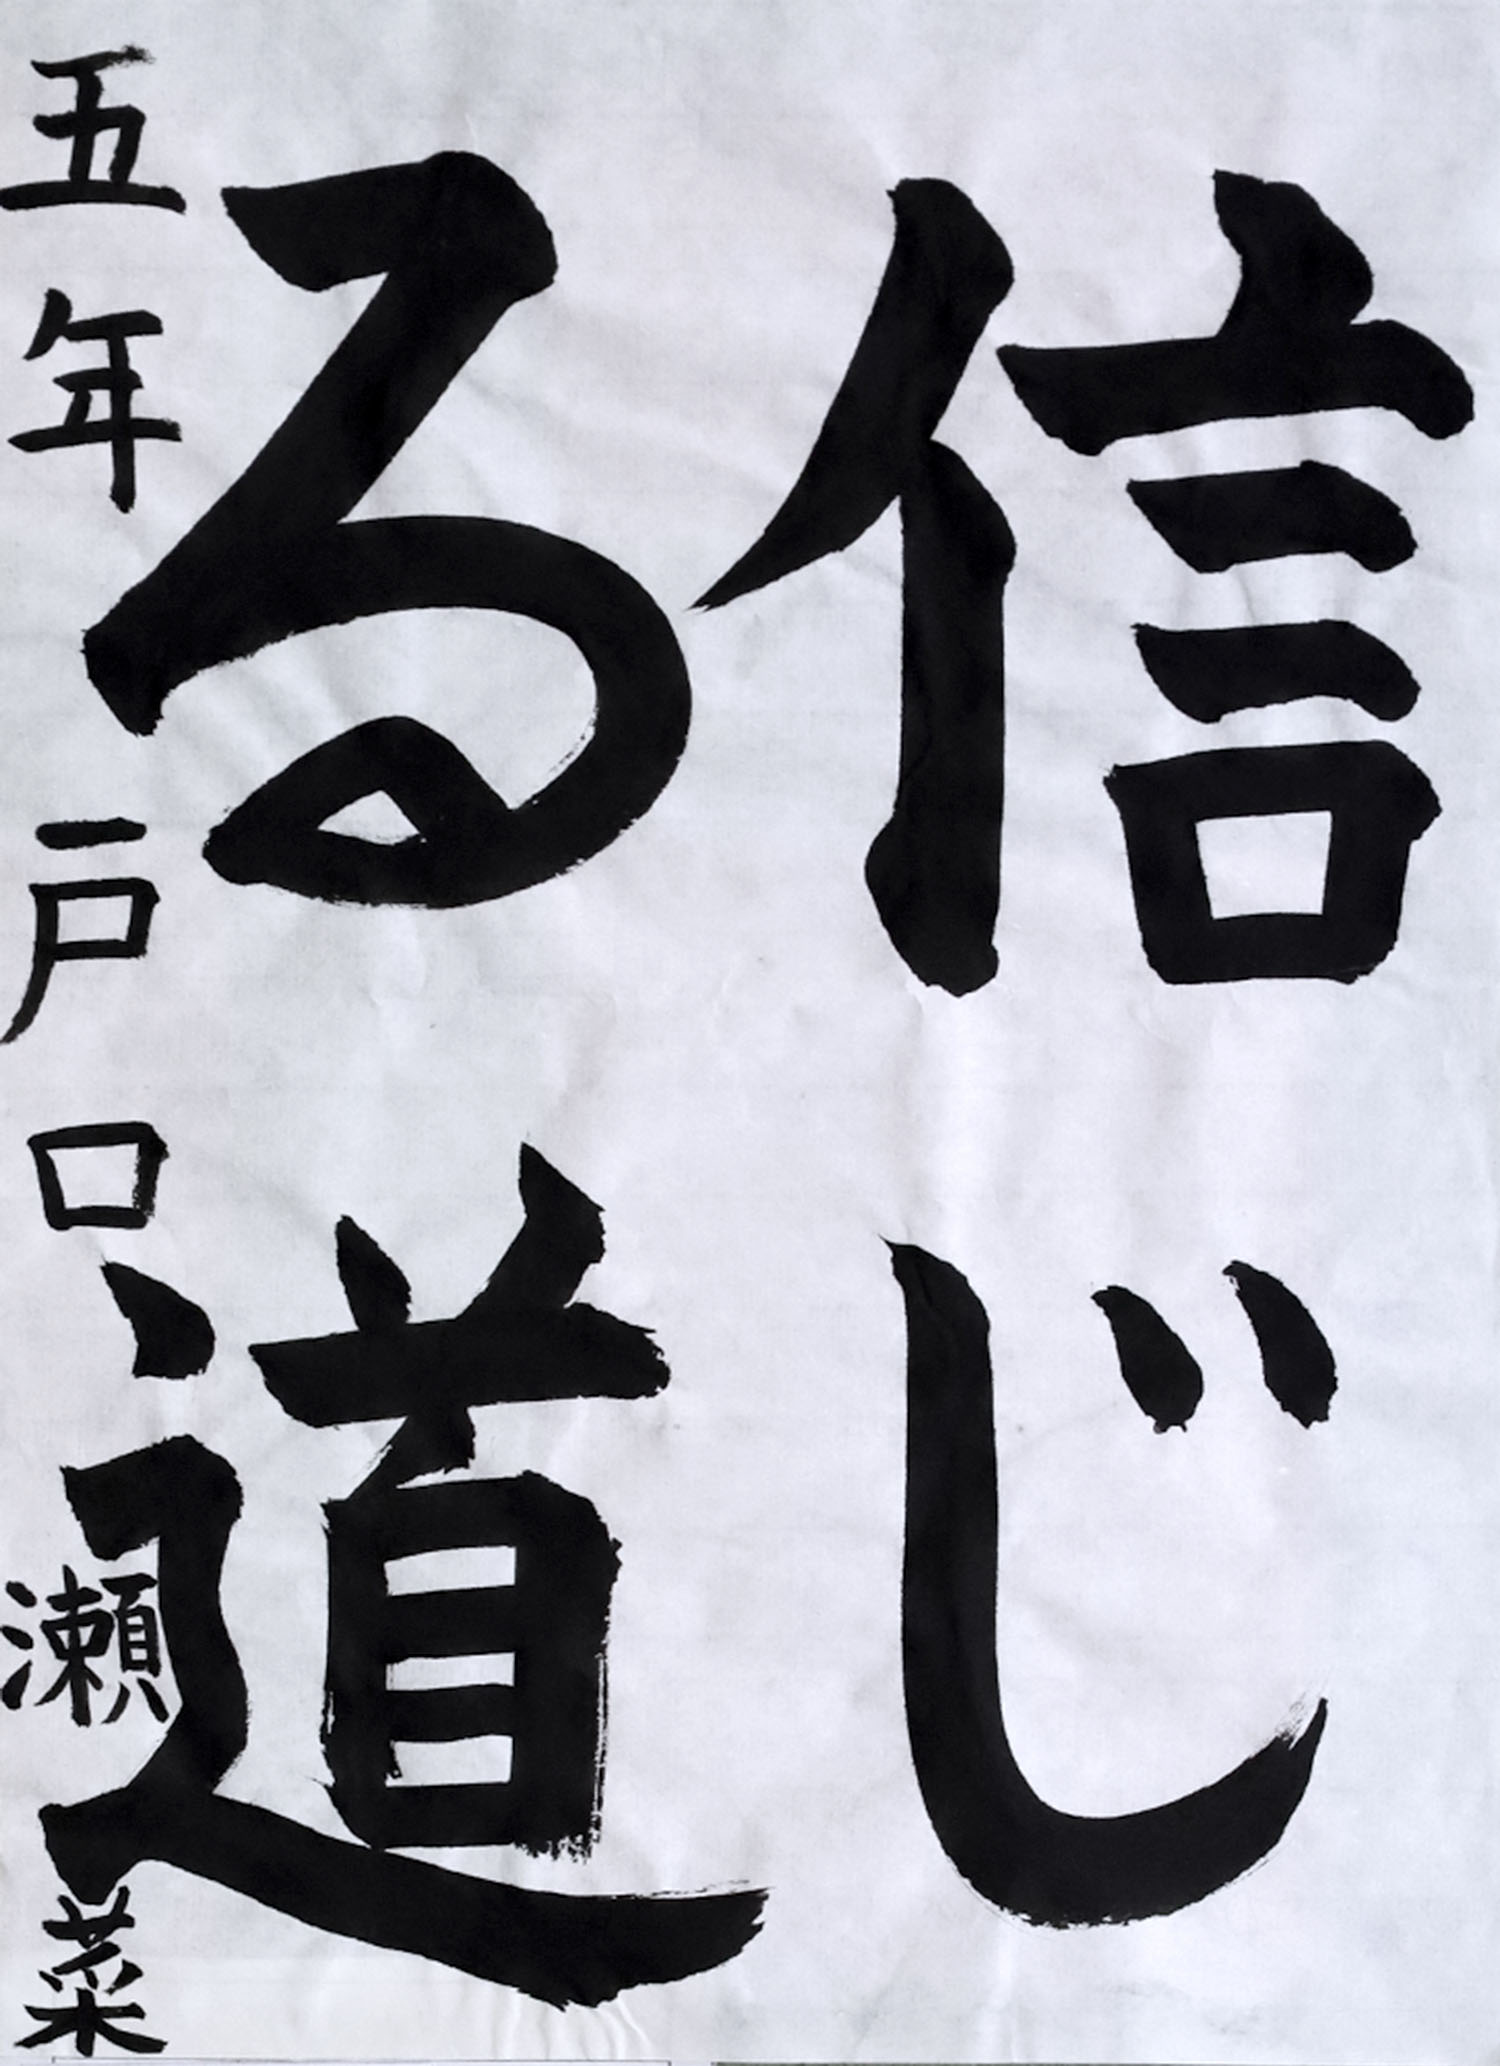 信じ
る道
五年 戸口 瀬菜